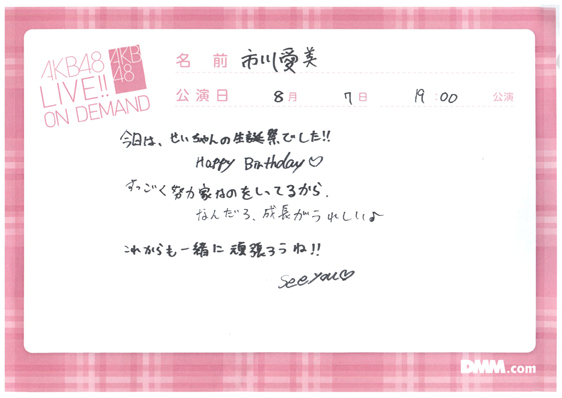 AKB48
LIVE!!
ON DEMAND
AKB
48
名前 市川愛美
公演日 8月 7日 19:00 公演
今日は、せいちゃんの生誕祭でした!!
Happy Birthday♡
すっごく努力家なのをしってるから、
なんだろ、成長がうれしい♪
これからも一緒に頑張ろうね!!
see you♡
DMM.com